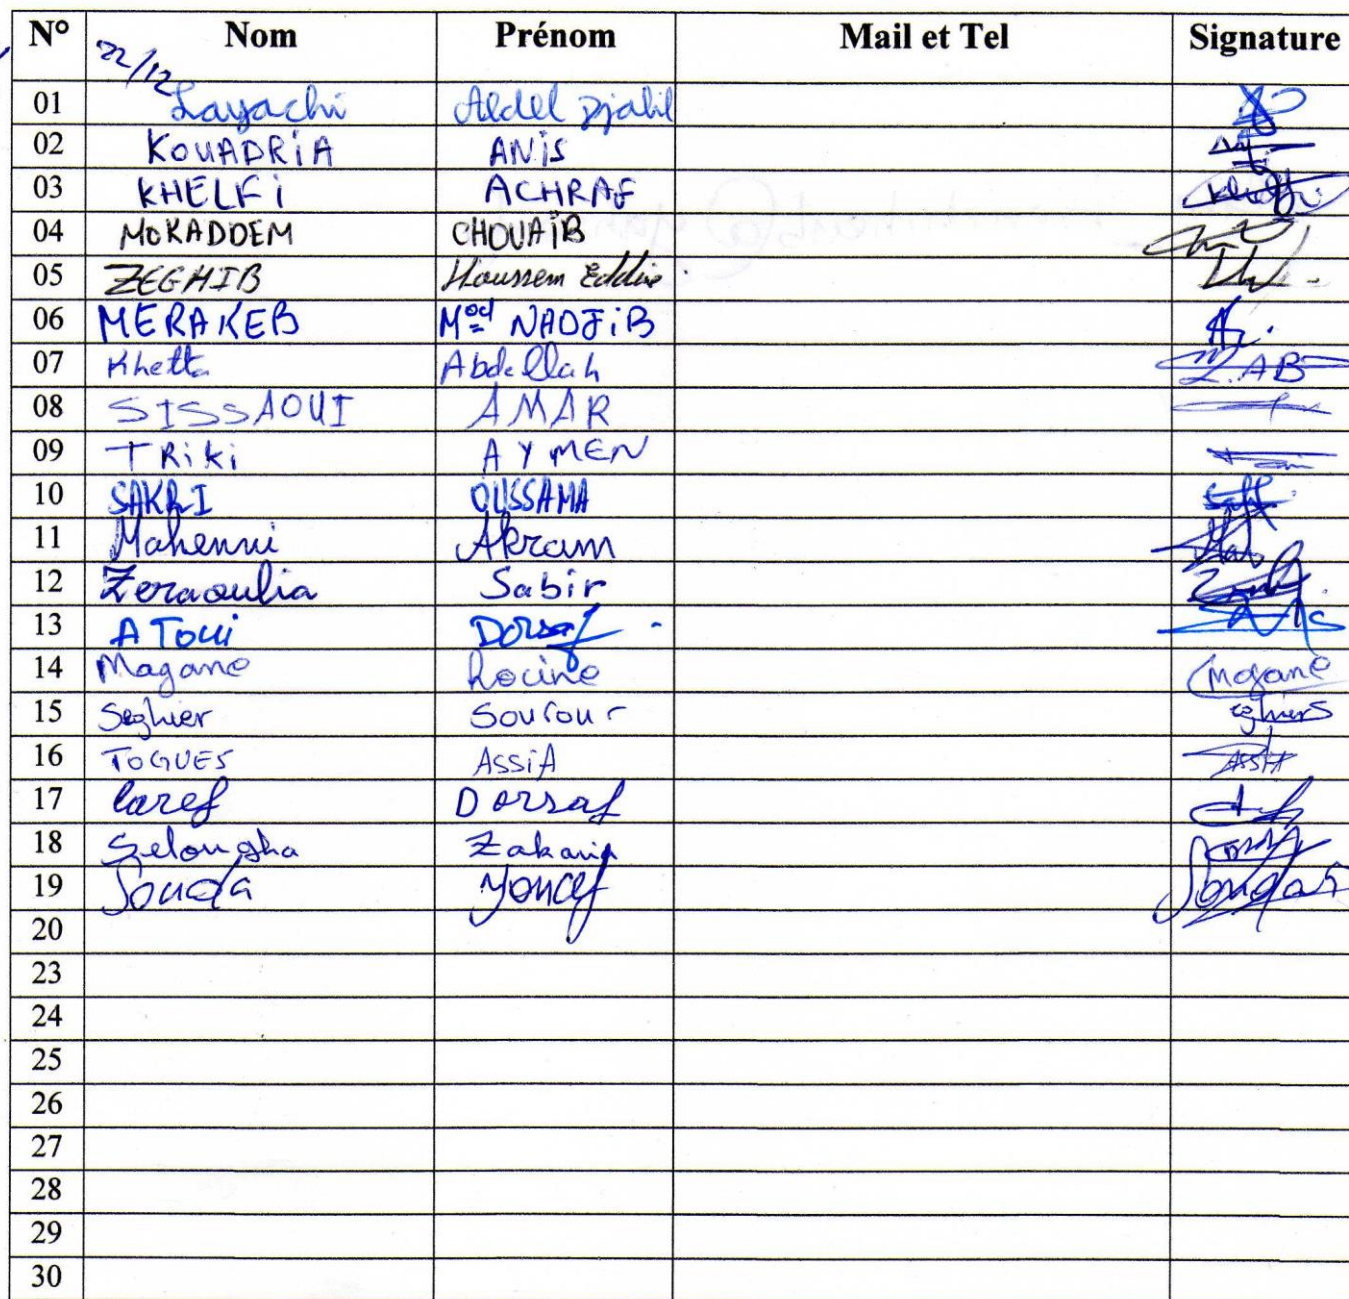 N° Nom Prénom Mail et Tel Signature
22/12
01 Layachi Abdel Djalil
02 KOUADRiA ANiS
03 KHELFi ACHRAF Khelfi
04 MOKADDEM CHOUAÏB
05 ZEGHIB Houssem Eddine
06 MERAKEB Med NADJiB
07 Khetta Abdellah K.AB
08 SISSAOUI AMAR
09 TRiki AYMEN
10 SAKRI OUSSAMA
11 Mahenni Akram
12 Zeraoulia Sabir
13 ATOUi Dorsaf
14 Magane Rocine Magane
15 Seghier Sourour
16 TOGUES ASSiA ASSIA
17 Caref Dorsaf
18 Selougha Zakaria
19 Souda Youcef
20
23
24
25
26
27
28
29
30